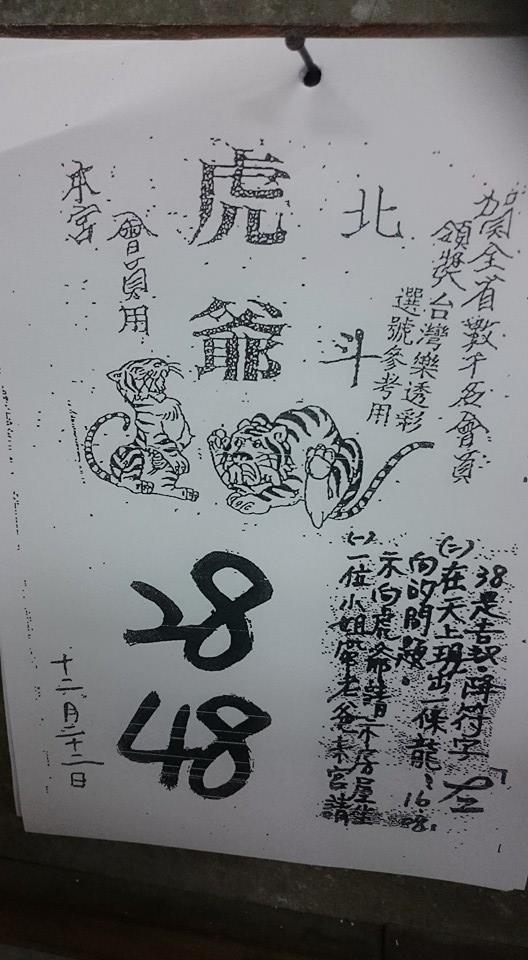 賀全省數千名會員
領獎台灣樂透彩
選號參考用
北斗
虎爺
本宮
會員用
(一)一位小姐帶老爸來宮請
示向虎爺請示房屋坐
向的問題.
(二)在天上現出一條龍?16.08.
38是吉號.降符字
28
48
十二月二十二日
1